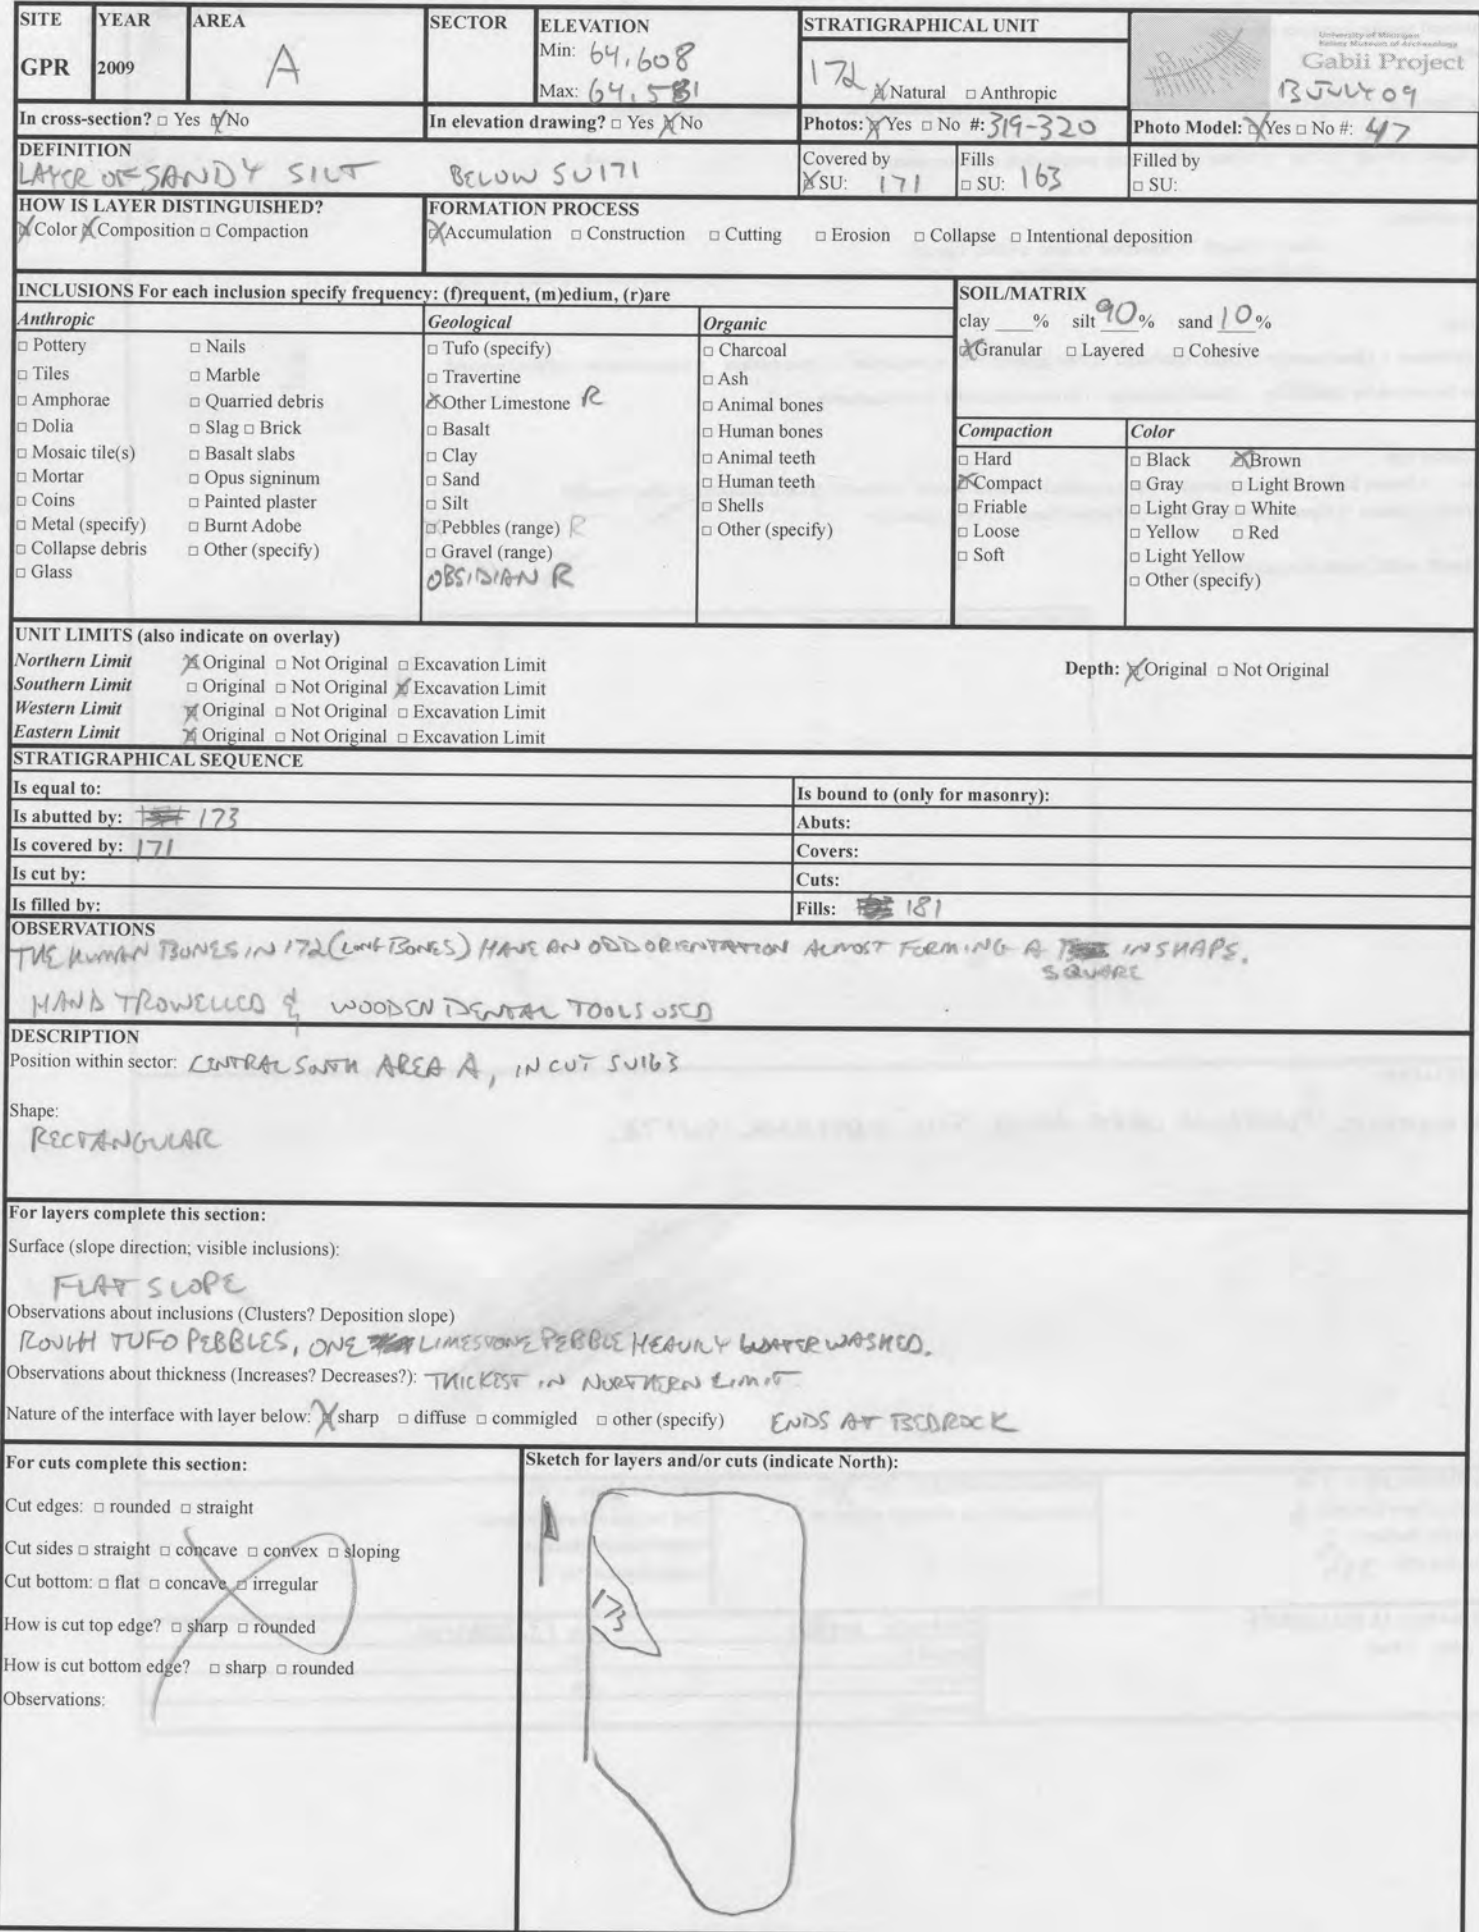 SITE YEAR AREA SECTOR ELEVATION STRATIGRAPHICAL UNIT
GPR 2009 A Min: 64.608 172 ☒ Natural □ Anthropic
Max: 64.581
University of Michigan
Kelsey Museum of Archaeology
Gabii Project
13 JULY 09
In cross-section? □ Yes ☒ No In elevation drawing? □ Yes ☒ No Photos: ☒ Yes □ No #: 319-320 Photo Model: ☒ Yes □ No #: 47
DEFINITION
LAYER OF SANDY SILT BELOW SU171
Covered by ☒ SU: 171 Fills □ SU: 163 Filled by □ SU:
HOW IS LAYER DISTINGUISHED?
☒ Color ☒ Composition □ Compaction
FORMATION PROCESS
☒ Accumulation □ Construction □ Cutting □ Erosion □ Collapse □ Intentional deposition
INCLUSIONS For each inclusion specify frequency: (f)requent, (m)edium, (r)are
Anthropic
□ Pottery □ Nails
□ Tiles □ Marble
□ Amphorae □ Quarried debris
□ Dolia □ Slag □ Brick
□ Mosaic tile(s) □ Basalt slabs
□ Mortar □ Opus signinum
□ Coins □ Painted plaster
□ Metal (specify) □ Burnt Adobe
□ Collapse debris □ Other (specify)
□ Glass
Geological
□ Tufo (specify)
□ Travertine
☒ Other Limestone R
□ Basalt
□ Clay
□ Sand
□ Silt
□ Pebbles (range) R
□ Gravel (range)
OBSIDIAN R
Organic
□ Charcoal
□ Ash
□ Animal bones
□ Human bones
□ Animal teeth
□ Human teeth
□ Shells
□ Other (specify)
SOIL/MATRIX
clay ____% silt 90% sand 10%
☒ Granular □ Layered □ Cohesive
Compaction
□ Hard
☒ Compact
□ Friable
□ Loose
□ Soft
Color
□ Black ☒ Brown
□ Gray □ Light Brown
□ Light Gray □ White
□ Yellow □ Red
□ Light Yellow
□ Other (specify)
UNIT LIMITS (also indicate on overlay)
Northern Limit ☒ Original □ Not Original □ Excavation Limit Depth: ☒ Original □ Not Original
Southern Limit □ Original □ Not Original ☒ Excavation Limit
Western Limit ☒ Original □ Not Original □ Excavation Limit
Eastern Limit ☒ Original □ Not Original □ Excavation Limit
STRATIGRAPHICAL SEQUENCE
Is equal to: Is bound to (only for masonry):
Is abutted by: 173 Abuts:
Is covered by: 171 Covers:
Is cut by: Cuts:
Is filled by: Fills: 181
OBSERVATIONS
THE HUMAN BONES IN 172 (LONG BONES) HAVE AN ODD ORIENTATION ALMOST FORMING A SQUARE IN SHAPE.
HAND TROWELLED & WOODEN DENTAL TOOLS USED
DESCRIPTION
Position within sector: CENTRAL SOUTH AREA A, IN CUT SU163
Shape:
RECTANGULAR
For layers complete this section:
Surface (slope direction; visible inclusions):
FLAT SLOPE
Observations about inclusions (Clusters? Deposition slope)
ROUGH TUFO PEBBLES, ONE LIMESTONE PEBBLE HEAVILY WATER WASHED.
Observations about thickness (Increases? Decreases?): THICKEST IN NORTHERN LIMIT
Nature of the interface with layer below: ☒ sharp □ diffuse □ commigled □ other (specify) ENDS AT BEDROCK
For cuts complete this section:
Cut edges: □ rounded □ straight
Cut sides □ straight □ concave □ convex □ sloping
Cut bottom: □ flat □ concave □ irregular
How is cut top edge? □ sharp □ rounded
How is cut bottom edge? □ sharp □ rounded
Observations:
Sketch for layers and/or cuts (indicate North):
173